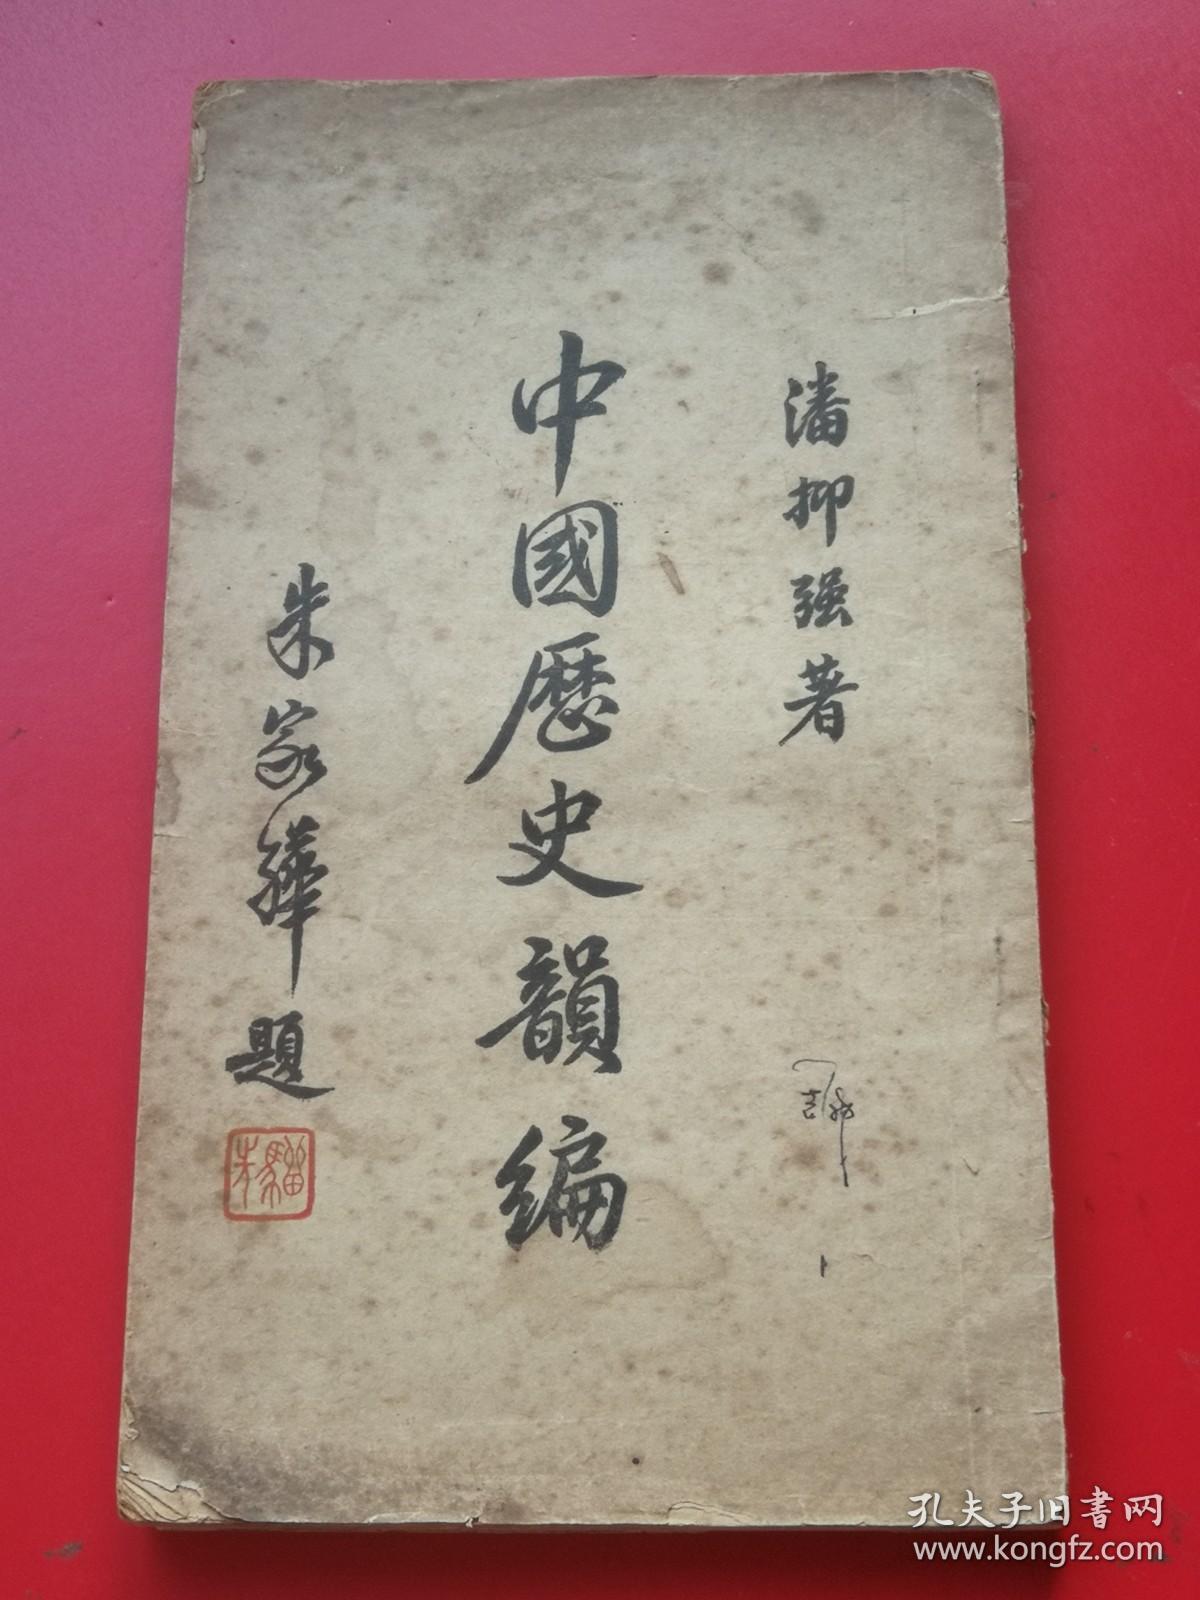 潘抑强著
中國歷史韻编
朱家驊題
孔夫子旧書网
www.kongfz.com